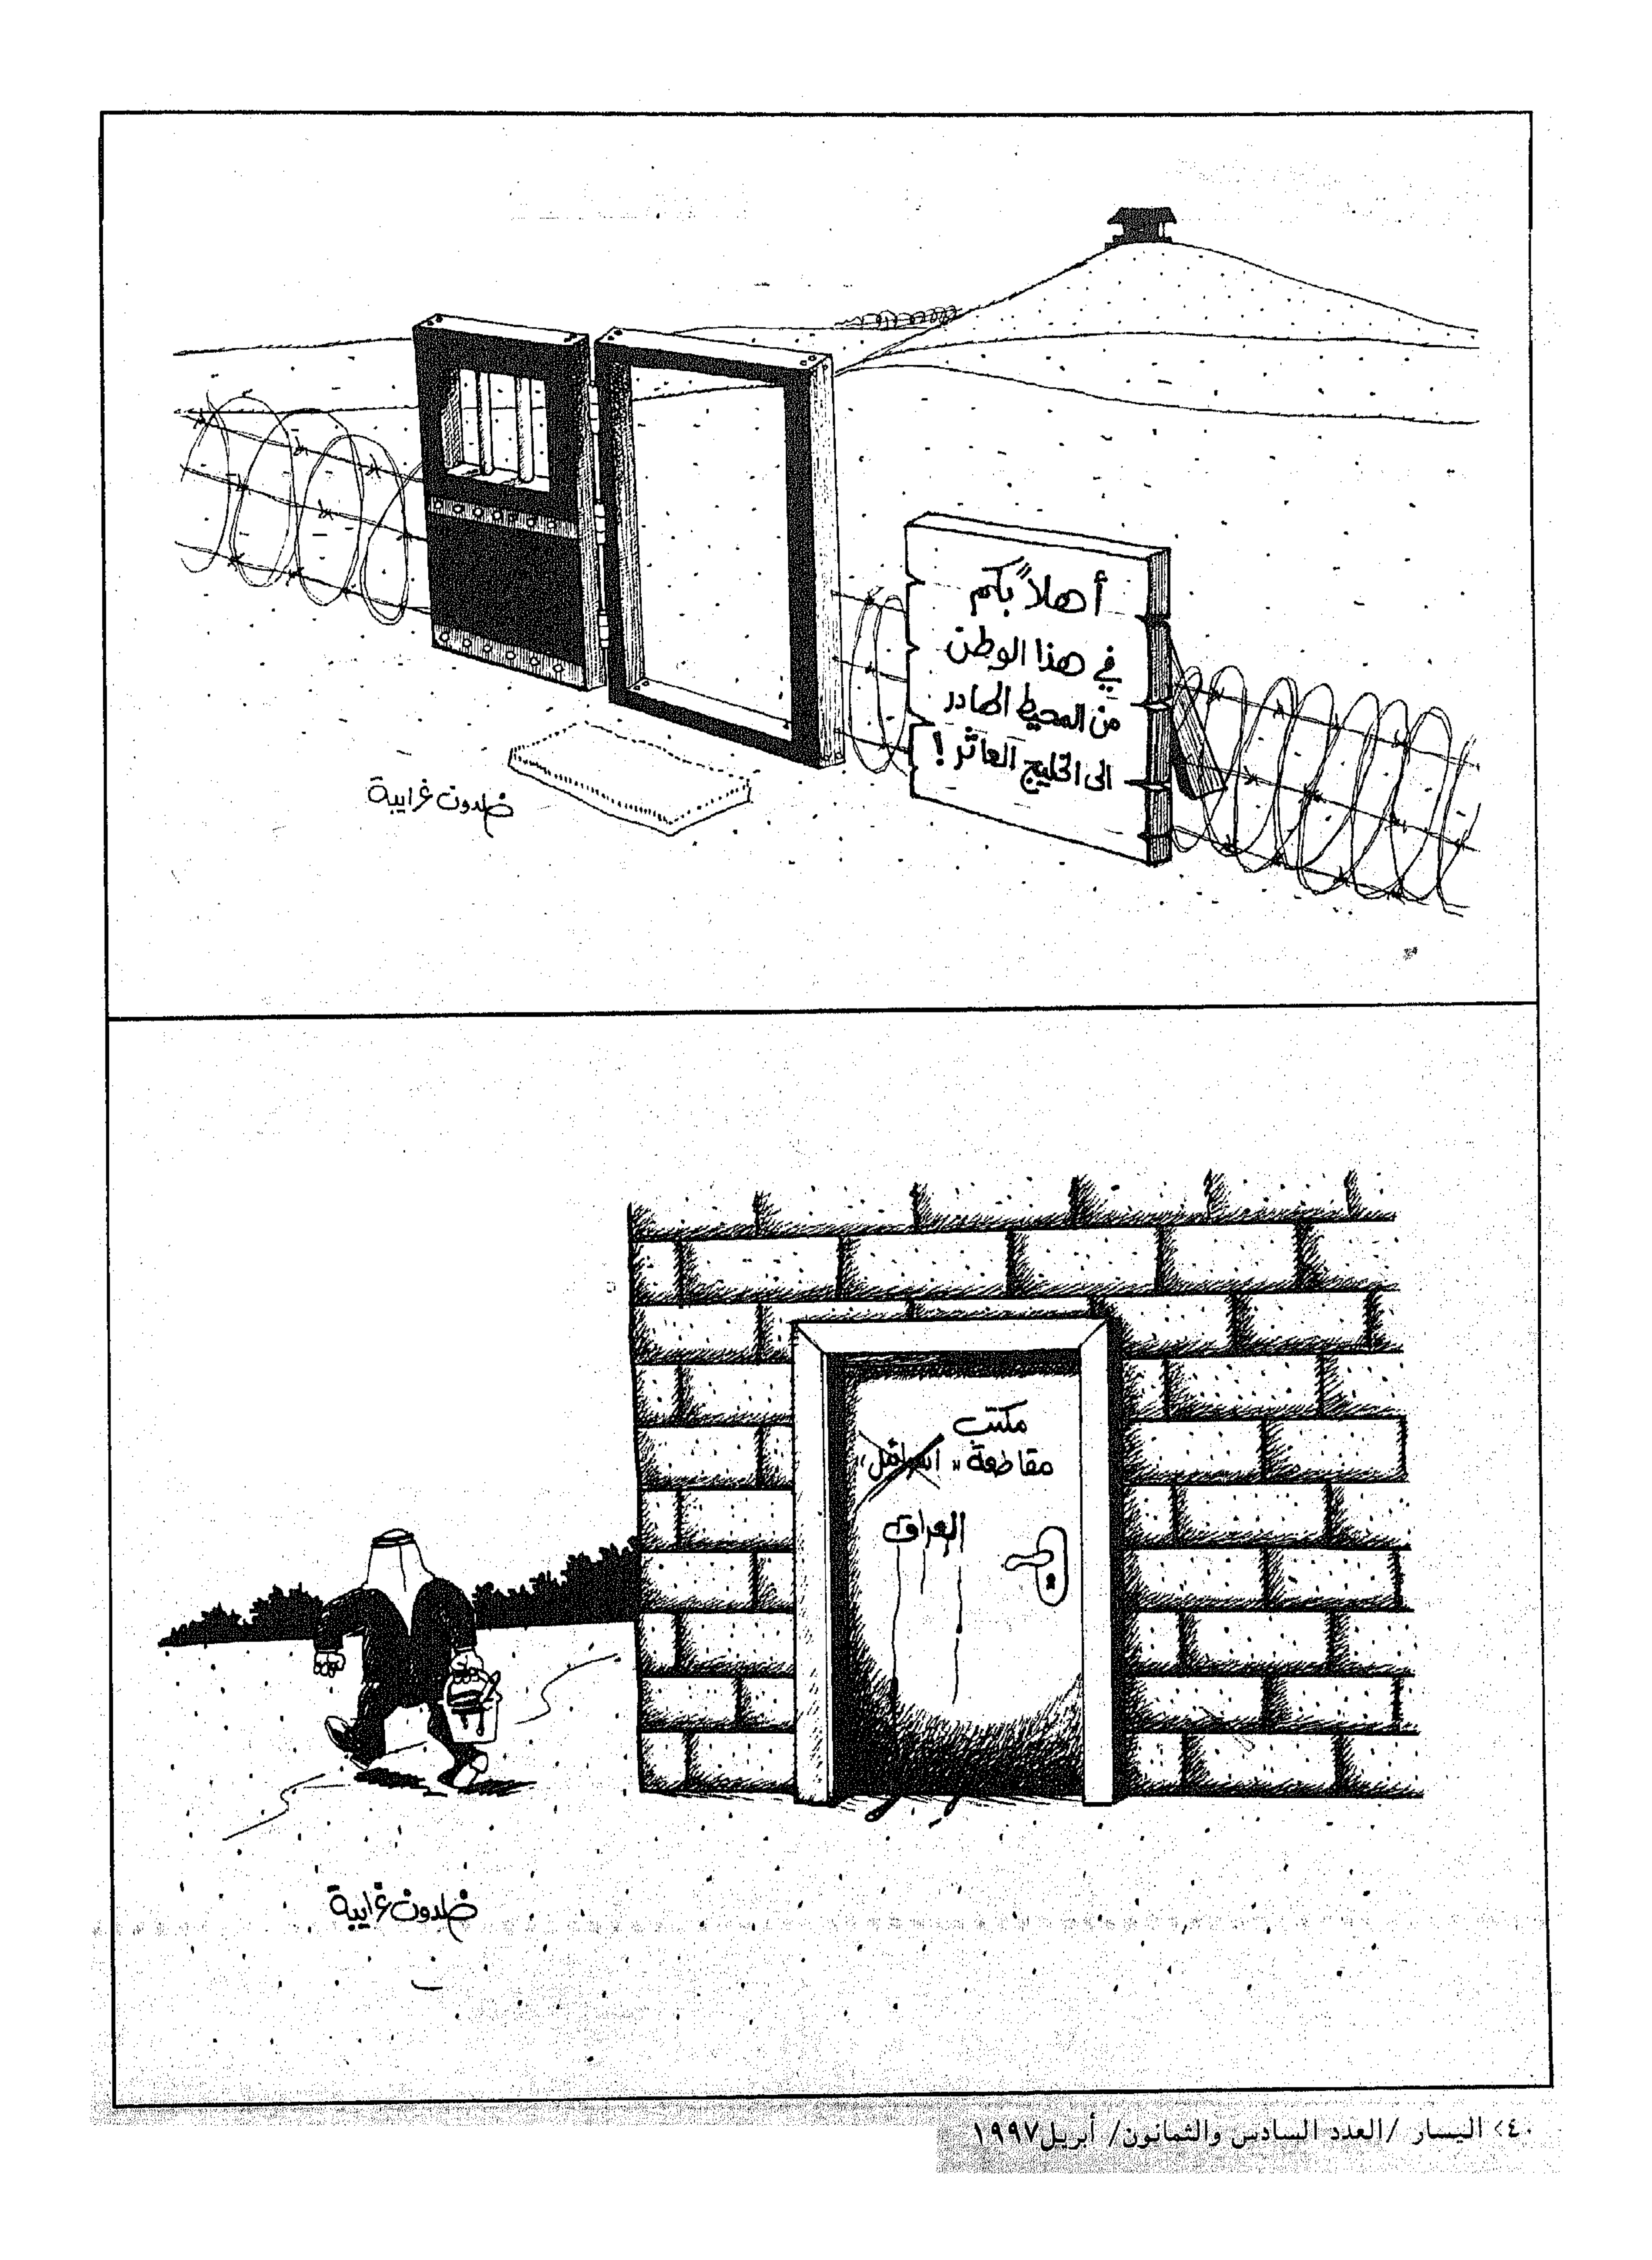 أهلاً بكم
في هذا الوطن
من المحيط الهادر
الى الخليج العاثر !
خلدون غرايبة
مكتب
مقاطعة "اسرائيل"
العراق
خلدون غرايبة
<٤٠> اليسار /العدد السادس والثمانون/ أبريل١٩٩٧